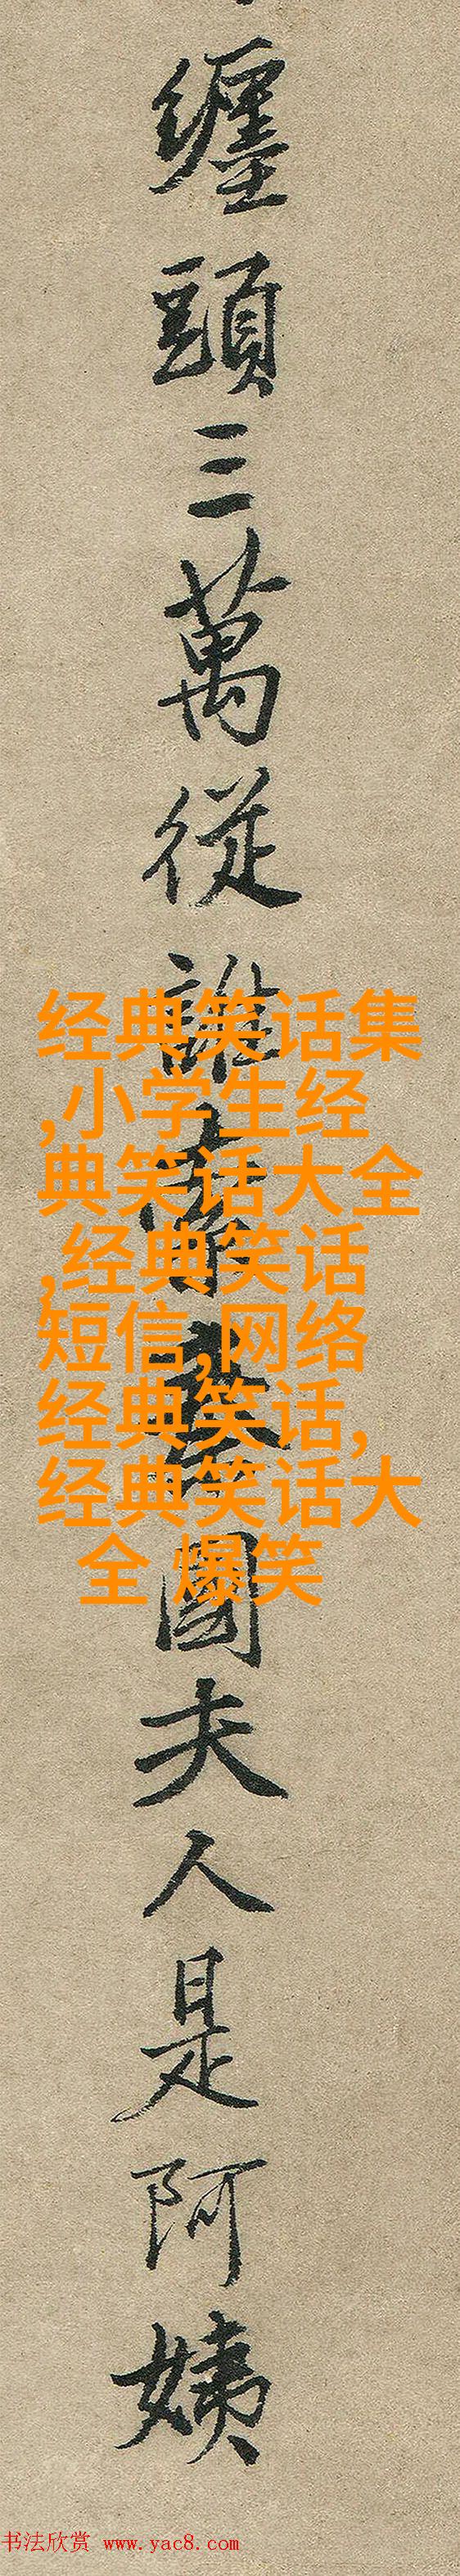 纏頭三萬從誰
國夫人是阿姨
经典笑话集
,小学生经
典笑话大全
,经典笑话
短信,网络
经典笑话,
经典笑话大
全 爆笑
书法欣赏 www.yac8.com